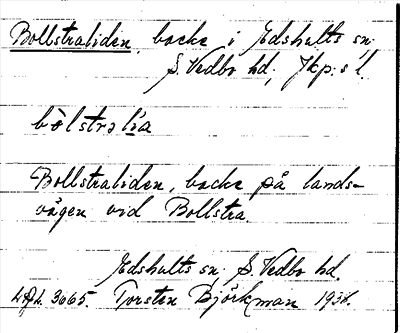 Bollstraliden, backe i Edshults sn.
S. Vedbo hd, Jkp:s l.
bòlstrəlía
Bollstraliden, backe på lands-
vägen vid Bollstra.
Edshults sn, S. Vedbo hd.
3665. Torsten Björkman